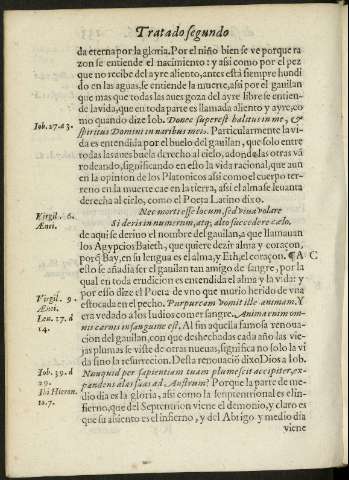 Tratado segundo
da eterna por la gloria. Por el niño bien se ve porque ra
zon se entiende el nacimiento: y asi como por el pez
que no recibe del ayre aliento, antes está siempre hundi
do en las aguas, se entiende la muerte, asi por el gauilan
que mas que todas las aues goza del ayre libre se entien-
de la vida, que en toda parte es llamada aliento y ayre, co
mo quando dize Iob. Donec superest halitus in me, &
Iob. 27. a 3.
spiritus Domini in naribus meis. Particularmente la vi-
da es entendida por el buelo del gauilan, que solo entre
todas las aues buela derecho al cielo, adonde las otras vã
rodeando, significando en esto la vida racional, que aun
en la opinion de los Platonicos asi como el cuerpo ter-
reno en la muerte cae en la tierra, asi el alma se leuanta
derecha al cielo, como el Poeta Latino dixo.
Nec morti esse locum, sed viua volare
Virgil. 6.
Æneï.
Sideris in numerum, atq; alto succedere cælo.
de aqui se deriuo el nombre del gauilan, a que llamauan
los Agypcios Baieth, que quiere dezir alma y coraçon,
porq̃ Bay, en su lengua es el alma, y Eth, el coraçon. ¶ A
C
esto se añadia ser el gauilan tan amigo de sangre, por la
qual en toda erudicion es entendida el alma y la vida: y
por esso dize el Poeta de vno que murio herido de vna
Virgil. 9.
Æneï.
estocada en el pecho. Purpuream vomit ille animam. Y
era vedado a los Iudios comer sangre. Anima enim om-
Leu. 17. d
14.
nis carnis in sanguine est. Al fin aquella famosa renoua-
cion del gauilan, con que deshechadas cada año las vie-
jas plumas se viste de otras nueuas, significa no solo la vi
da sino la resurreccion. Desta renouaciõ dixo Dios a Iob.
Iob. 39. d
29.
Nunquid per sapientiam tuam plumescit accipiter, ex-
pandens alas suas ad Austrum? Porque la parte de me-
Ibi Hieron.
to. 7.
dio dia es la gloria, asi como la septentrional es el in-
fierno, que del Septentrion viene el demonio, y claro es
que su asiento es el infierno, y del Abrigo y medio dia
viene